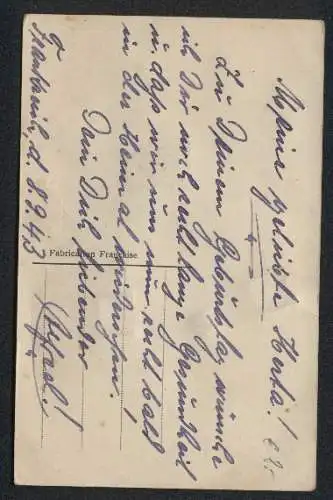 Meine geliebte Herta!
Zu Deinem Geburtstag wünsche
ich Dir noch recht lange Gesundheit
u. dass wir uns nun recht bald
in der Heimat wiedersehen.
Dein Dich liebender
Frankreich, d. 8.9.43
Fabrication Française